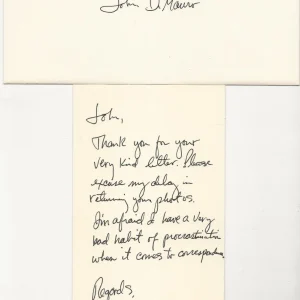 John DiMauro
John,
Thank you for your
very kind letter. Please
excuse my delay in
returning your photos.
I'm afraid I have a very
bad habit of procrastination
when it comes to correspondence
Regards,